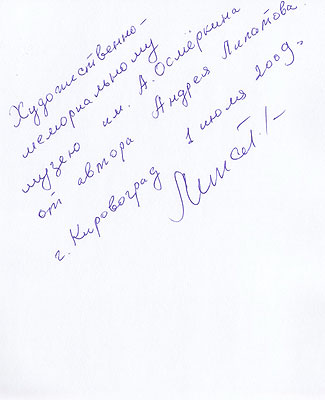 Художественно-
мемориальному
музею им. А. Осмёркина
от автора Андрея Липатова.
г. Кировоград 1 июля 2009 г.